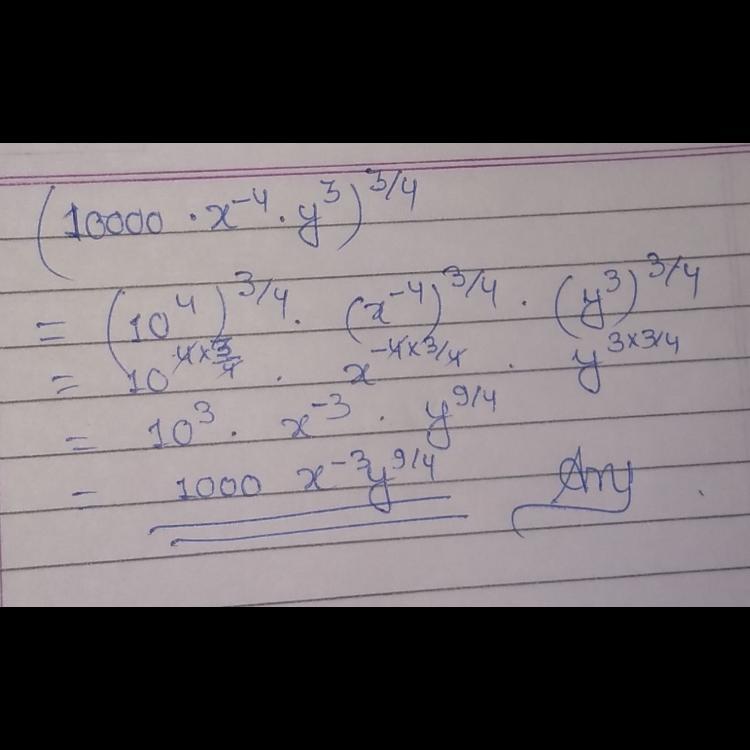 (10000 · x⁻⁴ · y³)^3/4
= (10⁴)^3/4 · (x⁻⁴)^3/4 · (y³)^3/4
= 10^4×3/4 · x^-4×3/4 · y^3×3/4
= 10³ · x⁻³ · y^9/4
= 1000 x⁻³y^9/4 Ans